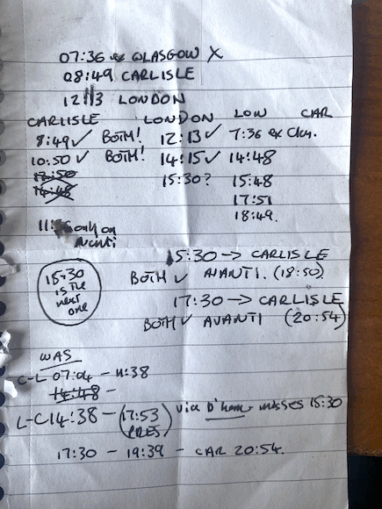 07:36 GLASGOW X
08:49 CARLISLE
12:13 LONDON
CARLISLE LONDON LON CAR
8:49 ✓ BOTH! 12:13 ✓ 7:36
10:50 ✓ BOTH! 14:15 ✓ 14:48
12:50 15:30? 15:48
14:48 17:51
18:49.
only on
Avanti
15:30 → CARLISLE
BOTH ✓ AVANTI. (18:50)
17:30 → CARLISLE
BOTH ✓ AVANTI (20:54)
15:30
is the
next
one
WAS
C-L 07:04 - 11:38
14:48 -
L-C 14:38 - (17:53 via B'ham - misses 15:30
PRES)
17:30 - 19:39 - CAR 20:54.